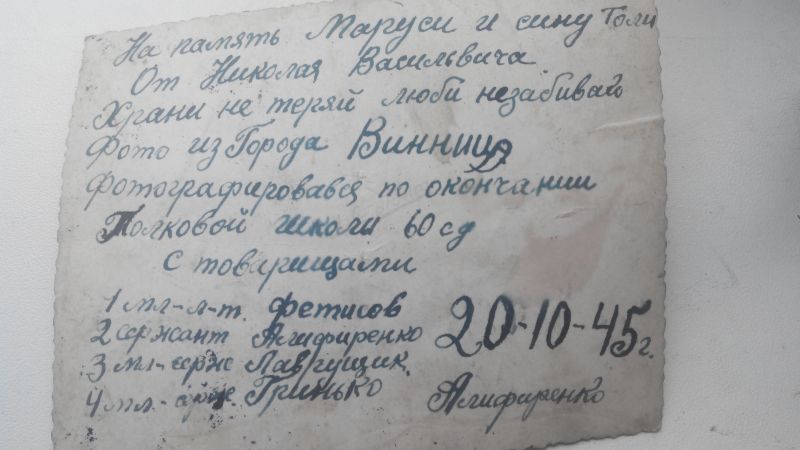 На память Маруси и сину Толи
От Николая Васильвича
Храни не теряй люби незабивай
Фото из Города Винниц
Фотографировався по окончании
Полковой школи 60 сд
С товарищами
1 мл-л-т. Фетисов
2 сержант Алифиренко
3 мл-серж Лаврущик.
4 мл-серж Гринько
20-10-45г.
Алифиренко